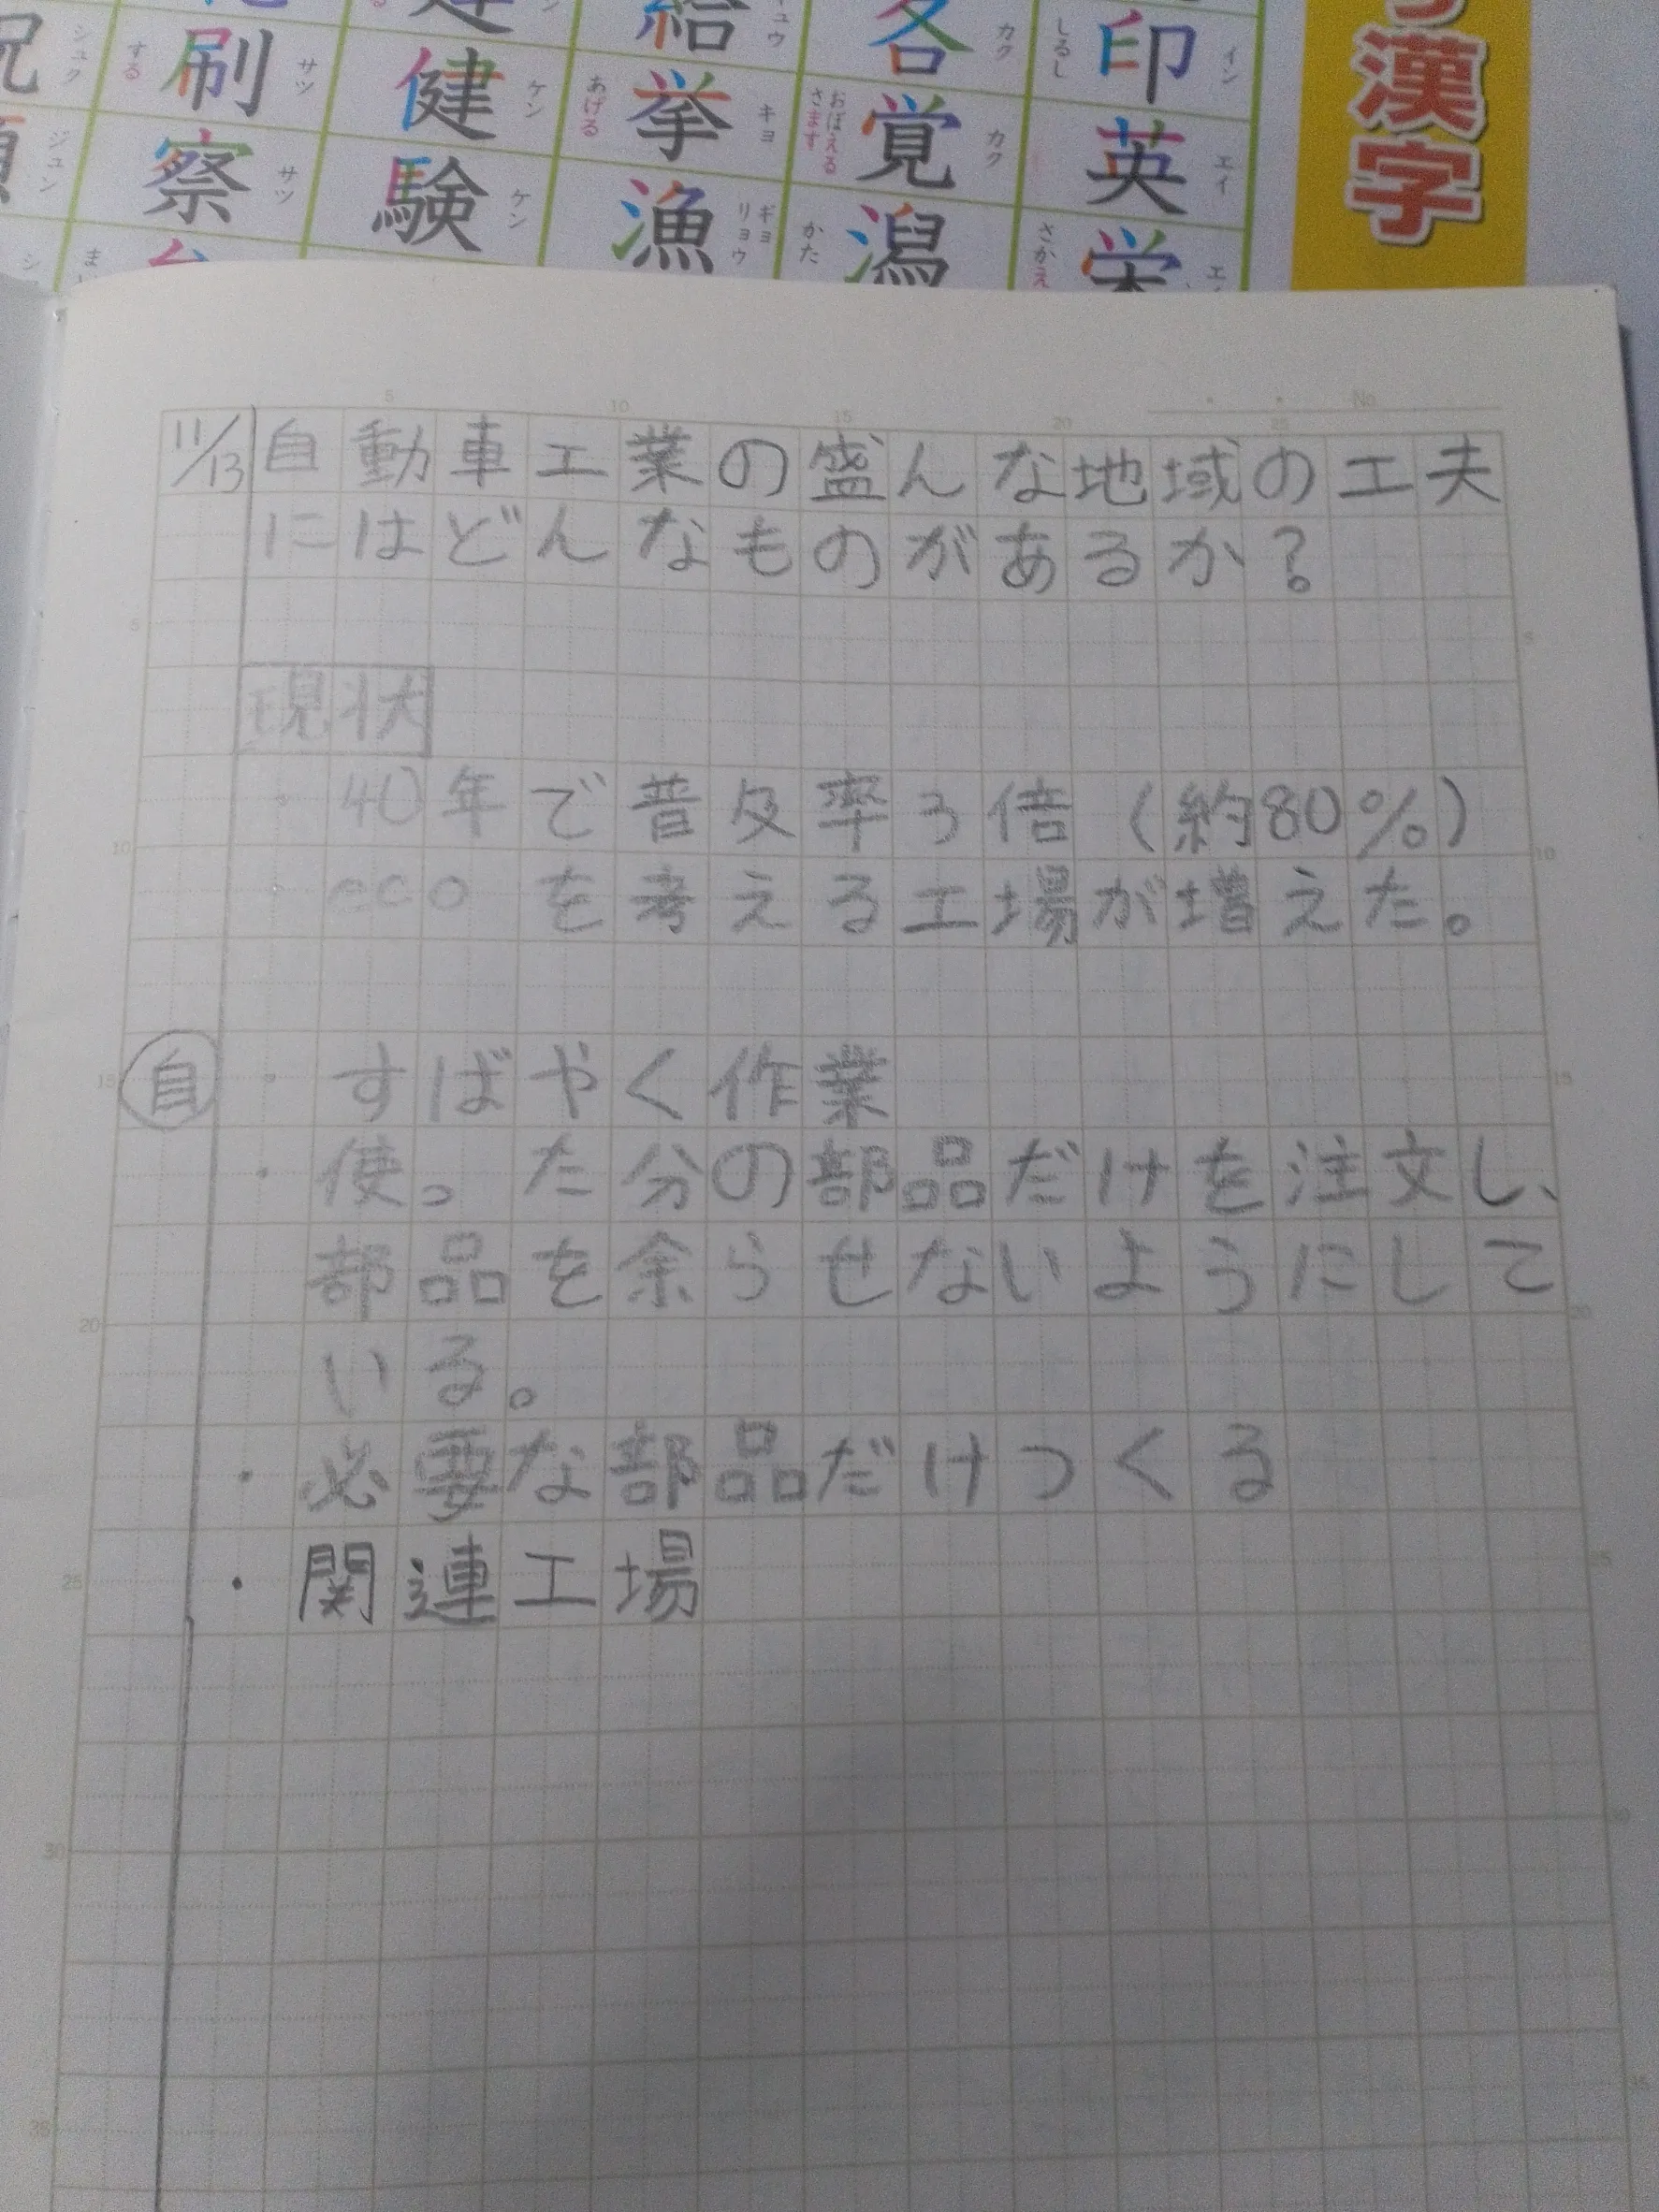 漢字
印 イン しるし
各 カク
給
刷 サツ する
健 ケン
挙 キョ あげる
覚 カク おぼえる さます
英 エイ
察 サツ
験 ケン
漁 ギョ リョウ
潟 かた
栄 さかえ
シュク
ジュン
No.
5 10 15 20 25
11/13 自動車工業の盛んな地域の工夫
にはどんなものがあるか?
現状
・40年で普及率3倍(約80%)
・ecoを考える工場が増えた。
自 ・すばやく作業
・使った分の部品だけを注文し、
部品を余らせないようにして
いる。
・必要な部品だけつくる
・関連工場